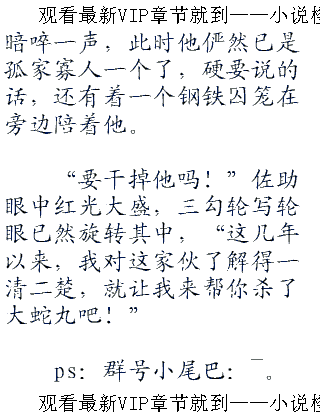 观看最新VIP章节就到——小说
暗啐一声，此时他俨然已是
孤家寡人一个了，硬要说的
话，还有着一个钢铁囚笼在
旁边陪着他。
“要干掉他吗！”佐助
眼中红光大盛，三勾轮写轮
眼已然旋转其中，“这几年
以来，我对这家伙了解得一
清二楚，就让我来帮你杀了
大蛇丸吧！”
ps：群号小尾巴：¯。
观看最新VIP章节就到——小说